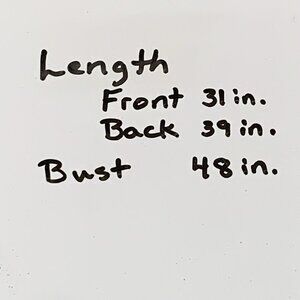 Length
Front 31 in.
Back 39 in.
Bust 48 in.